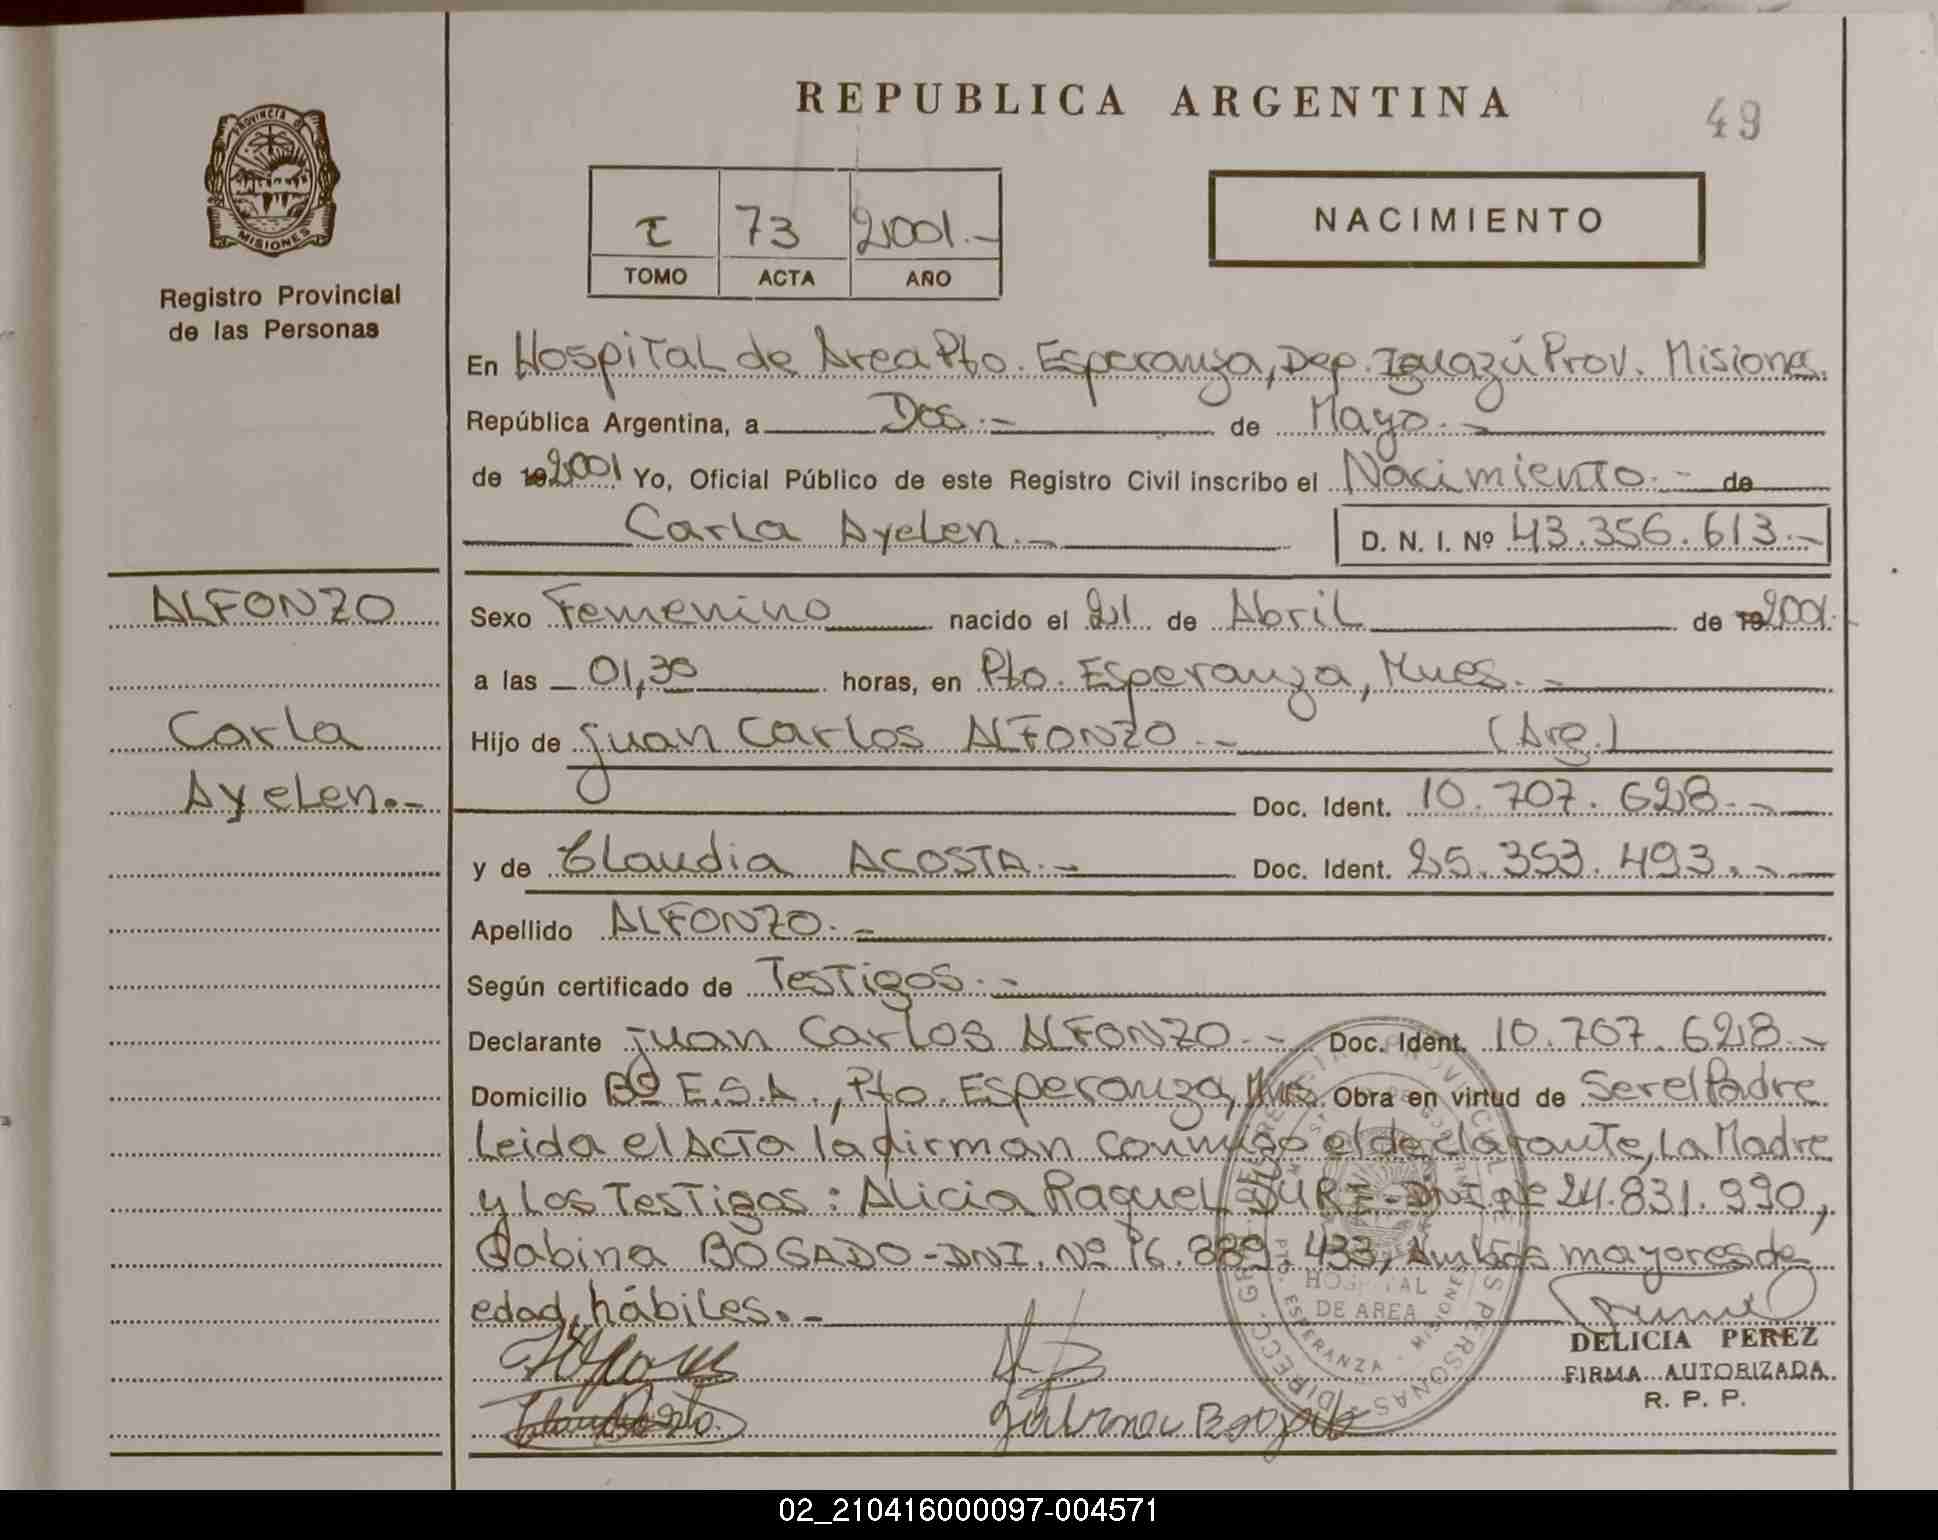 REPUBLICA ARGENTINA
49
PROVINCIA D
MISIONES
Registro Provincial
de las Personas
73 2001.-
TOMO ACTA AÑO
NACIMIENTO
En Hospital de Area Pto. Esperanza, Dep. Iguazú Prov. Misiones.
República Argentina, a Dos.- de Mayo.-
de 19 2001 Yo, Oficial Público de este Registro Civil inscribo el Nacimiento.- de
Carla Ayelen.- D. N. I. Nº 43.356.613.-
ALFONZO
Carla
Ayelen.-
Sexo Femenino nacido el 21 de Abril de 19 2001.
a las 01,30 horas, en Pto. Esperanza, Mnes.-
Hijo de Juan Carlos ALFONZO.- (Arg.)
Doc. Ident. 10.707.628.-
y de Claudia ACOSTA.- Doc. Ident. 25.353.493.-
Apellido ALFONZO.-
Según certificado de Testigos.-
Declarante Juan Carlos ALFONZO.- Doc. Ident. 10.707.628.-
Domicilio Bº E.S.A., Pto. Esperanza, Mnes Obra en virtud de Ser el Padre
Leida el Acta la firman conmigo el declarante, La Madre
y Los Testigos: Alicia Raquel DNI Nº 24.831.990,
Gabina BOGADO-DNI. Nº 16.889.433, Ambos mayores de
edad, hábiles.-
HOSPITAL
DE AREA
PTO. ESPERANZA - MISIONES
DELICIA PEREZ
FIRMA AUTORIZADA
R. P. P.
02_210416000097-004571